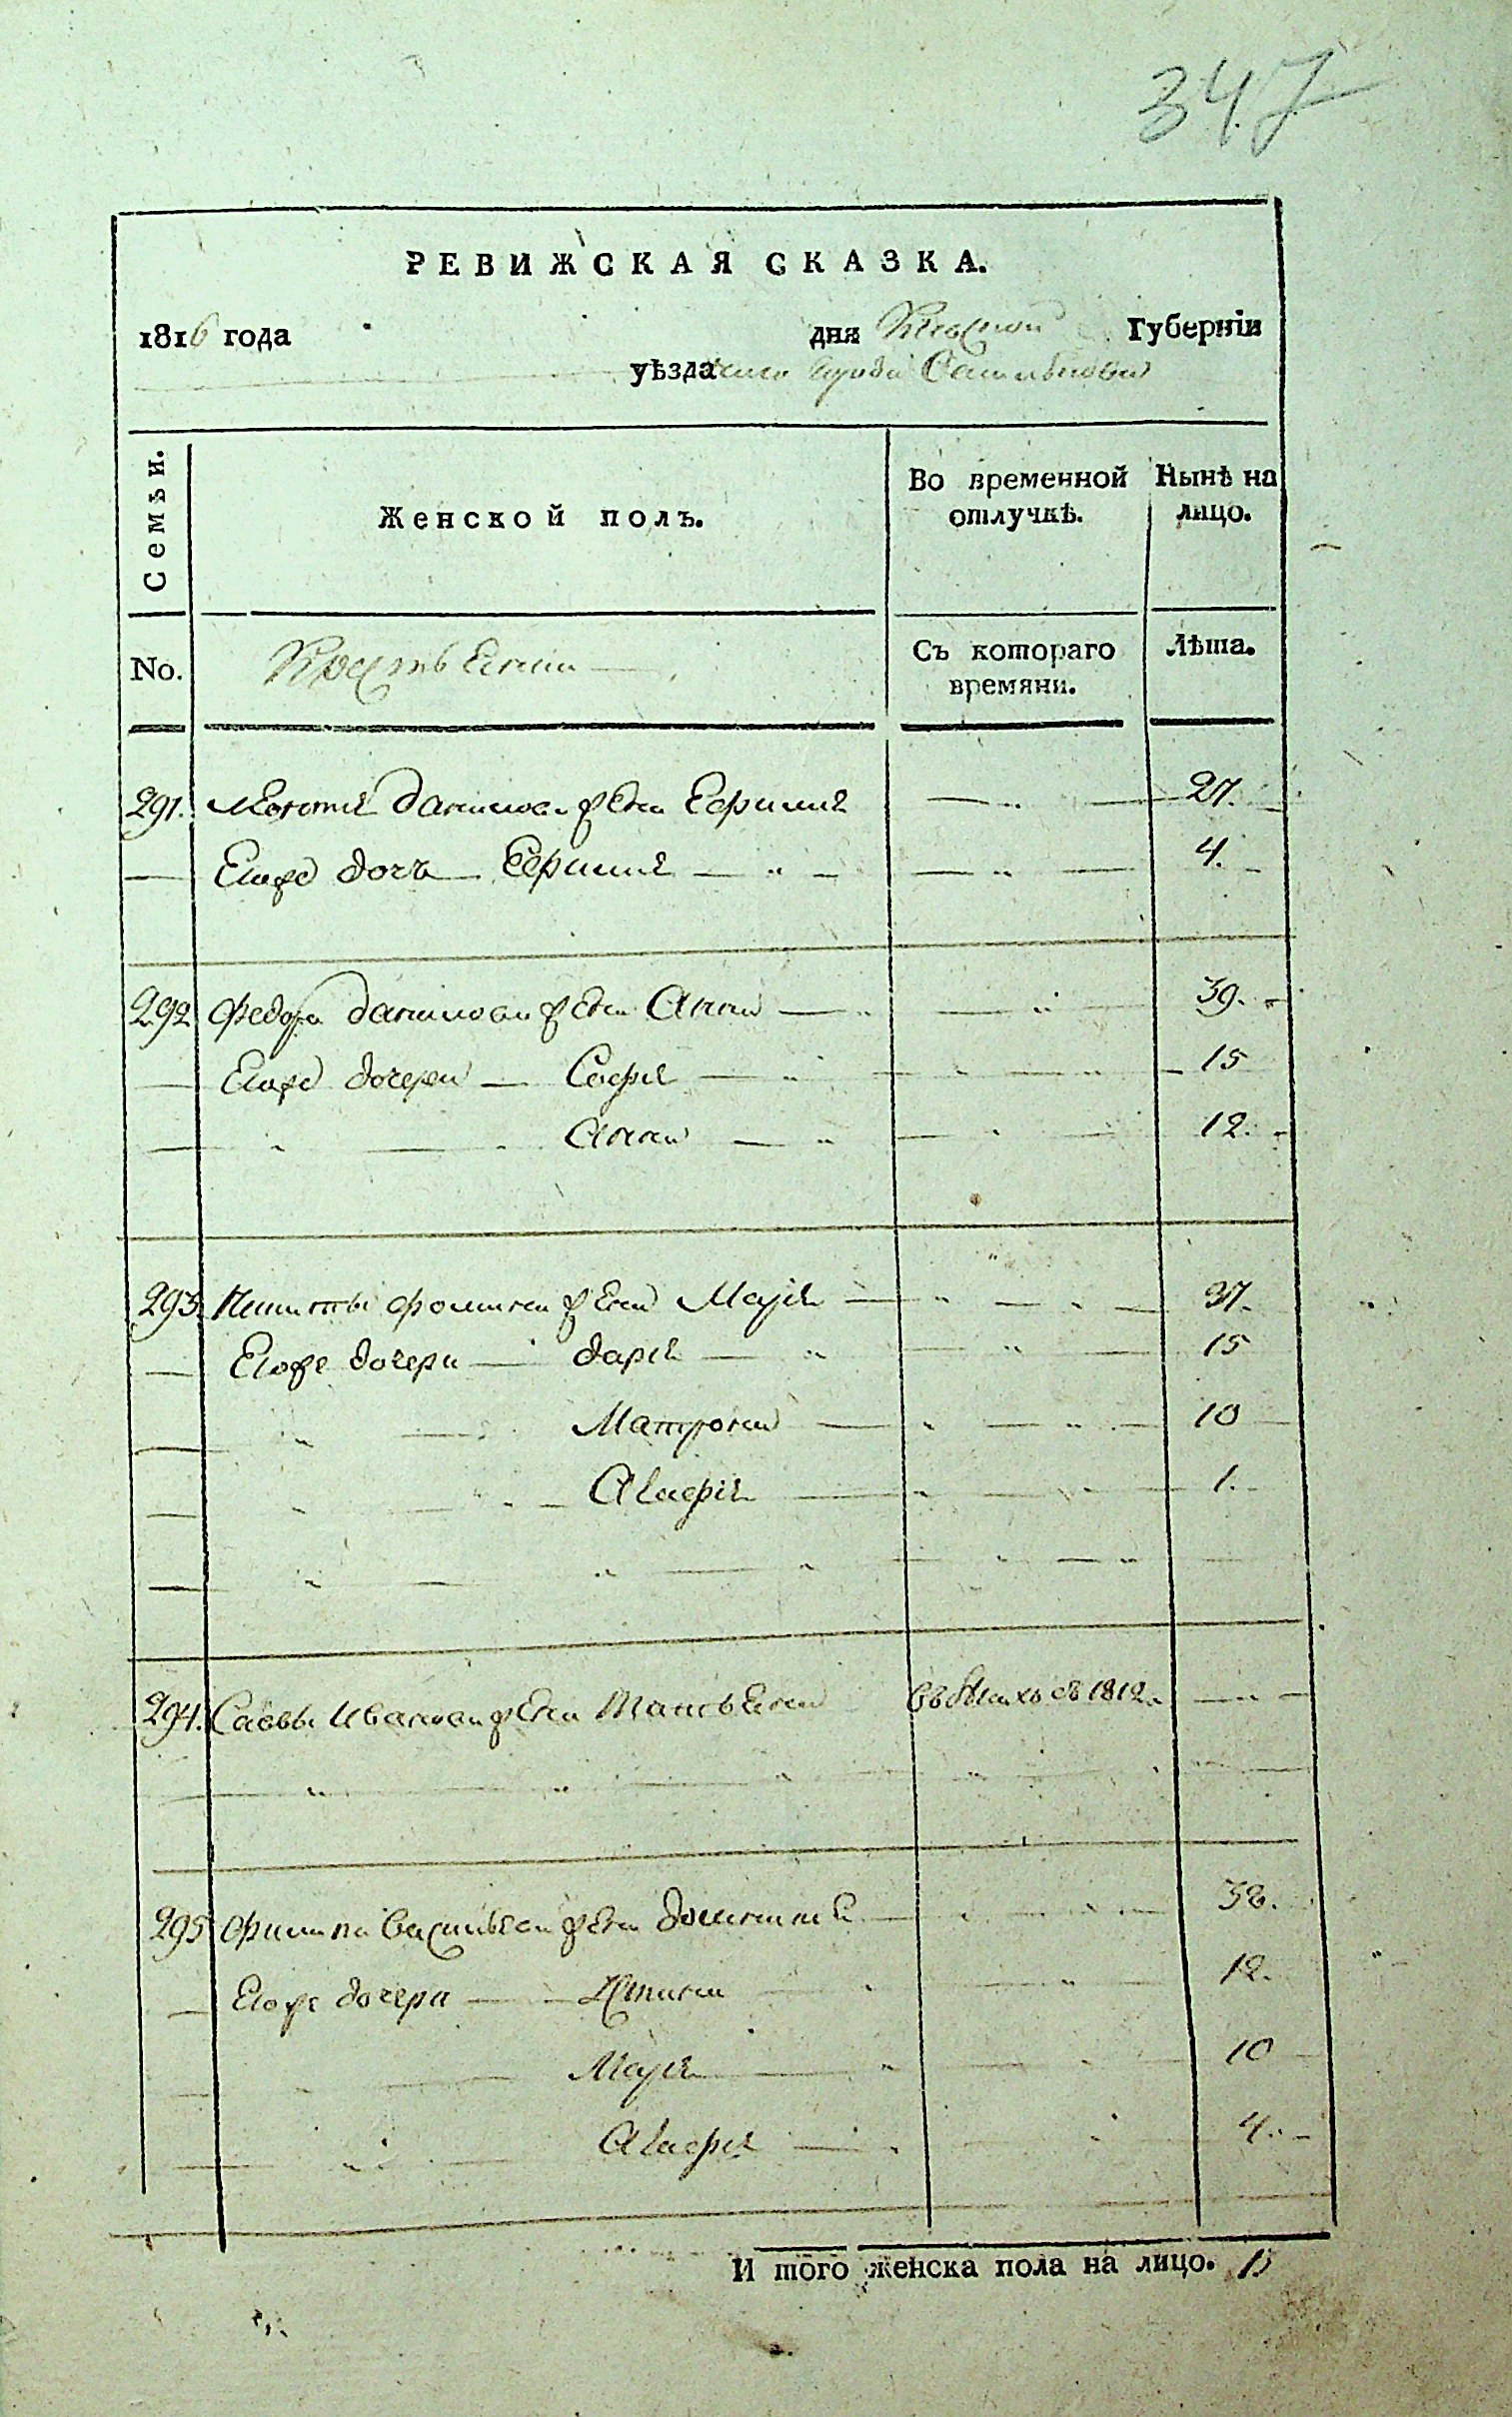 347
РЕВИЖСКАЯ СКАЗКА.
1816 года дня Киевской Губерніи
уѣзда
Семьи.
Женской полъ.
Во временной отлучкѣ.
Нынѣ на лицо.
No.
Крестьянъ
Съ котораго времяни.
Лѣта.
291. Данилова жена Ефимия 27.
Его же дочь Ефимия 4.
292 Федора Данилова жена Анна 39.
Его же дочери София 15
Анна 12.
293. Никиты Фомина жена Марія 37.
Его же дочери Дария 15
Матрона 10
Агафія 1.
294. Саввы Иванова жена Татьяна въ бѣгахъ съ 1812.
295 Филипа Васильева жена 38.
Его же дочери 12.
Мария 10
Агафия 4.
И того женска пола на лицо.